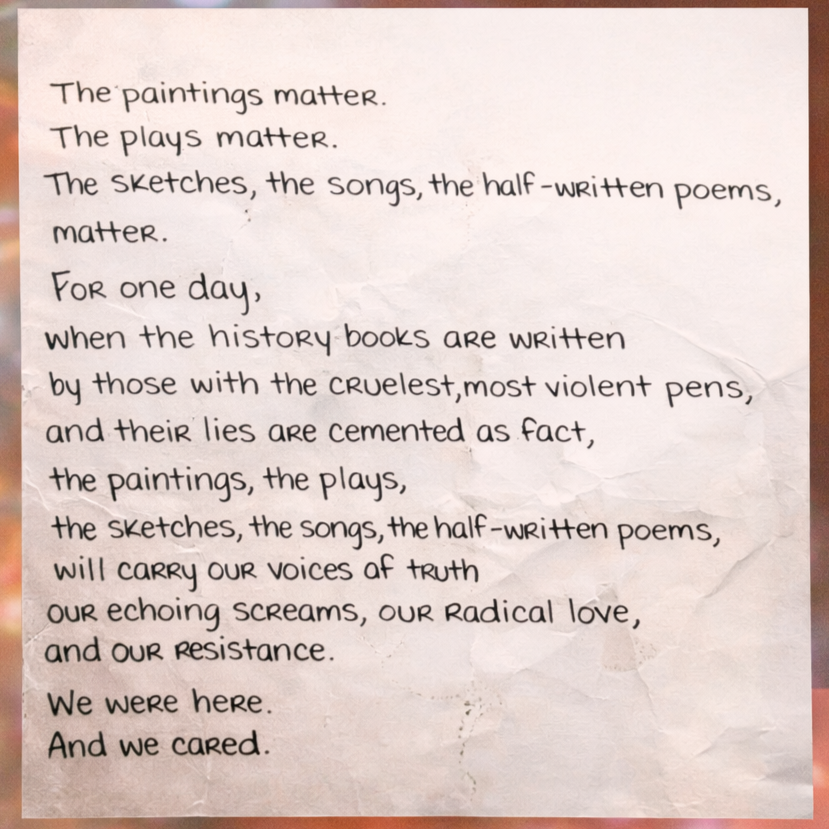 The paintings matter.
The plays matter.
The sketches, the songs, the half-written poems,
matter.
For one day,
when the history books are written
by those with the cruelest, most violent pens,
and their lies are cemented as fact,
the paintings, the plays,
the sketches, the songs, the half-written poems,
will carry our voices of truth
our echoing screams, our radical love,
and our resistance.
We were here.
And we cared.